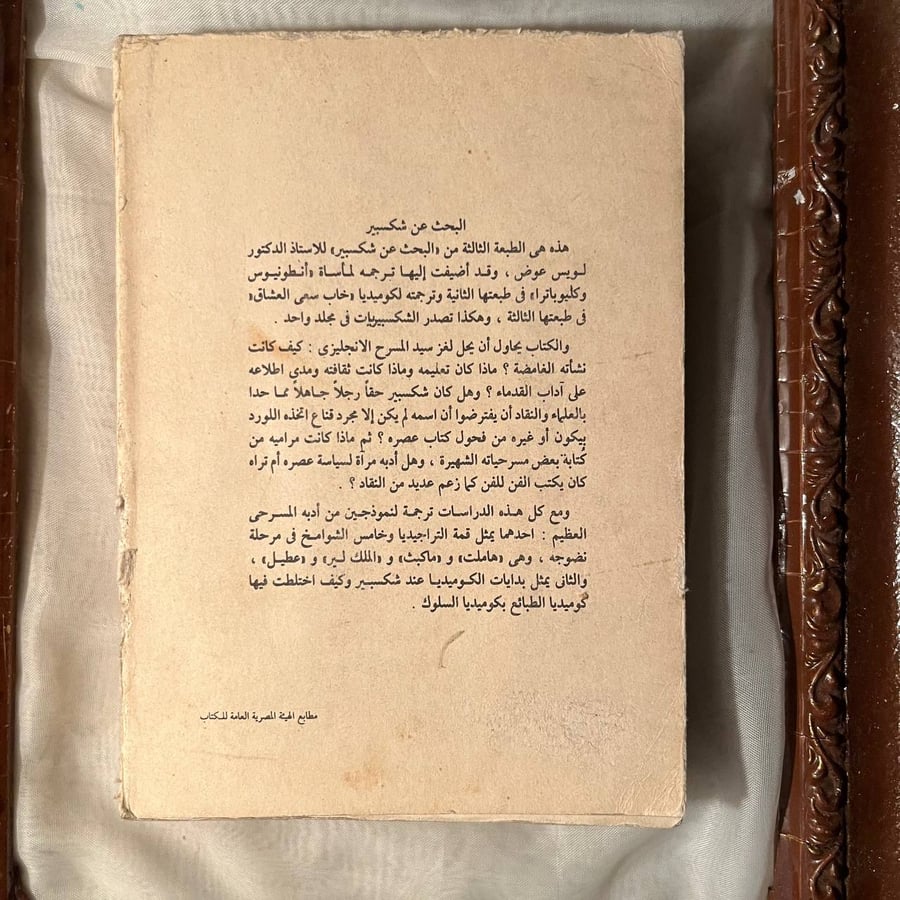 البحث عن شكسبير
هذه هى الطبعة الثالثة من «البحث عن شكسبير» للاستاذ الدكتور
لويس عوض ، وقد أضيفت إليها ترجمه لمأساة «أنطونيوس
وكليوباترا» فى طبعتها الثانية وترجمته لكوميديا «خاب سعى العشاق»
فى طبعتها الثالثة ، وهكذا تصدر الشكسبيريات فى مجلد واحد .
والكتاب يحاول أن يحل لغز سيد المسرح الانجليزى : كيف كانت
نشأته الغامضة ؟ ماذا كان تعليمه وماذا كانت ثقافته ومدى اطلاعه
على آداب القدماء ؟ وهل كان شكسبير حقاً رجلاً جاهلاً مما حدا
بالعلماء والنقاد أن يفترضوا أن اسمه لم يكن إلا مجرد قناع اتخذه اللورد
بيكون أو غيره من فحول كتاب عصره ؟ ثم ماذا كانت مراميه من
كُتابة بعض مسرحياته الشهيرة ، وهل أدبه مرآة لسياسة عصره أم تراه
كان يكتب الفن للفن كما زعم عديد من النقاد ؟ .
ومع كل هذه الدراسات ترجمة لنموذجين من أدبه المسرحى
العظيم : احدهما يمثل قمة التراجيديا وخامس الشوامخ فى مرحلة
نضوجه ، وهى «هاملت» و «ماكبث» و «الملك لير» و «عطيل» ،
والثانى يمثل بدايات الكوميديا عند شكسبير وكيف اختلطت فيها
كوميديا الطبائع بكوميديا السلوك .
مطابع الهيئة المصرية العامة للكتاب